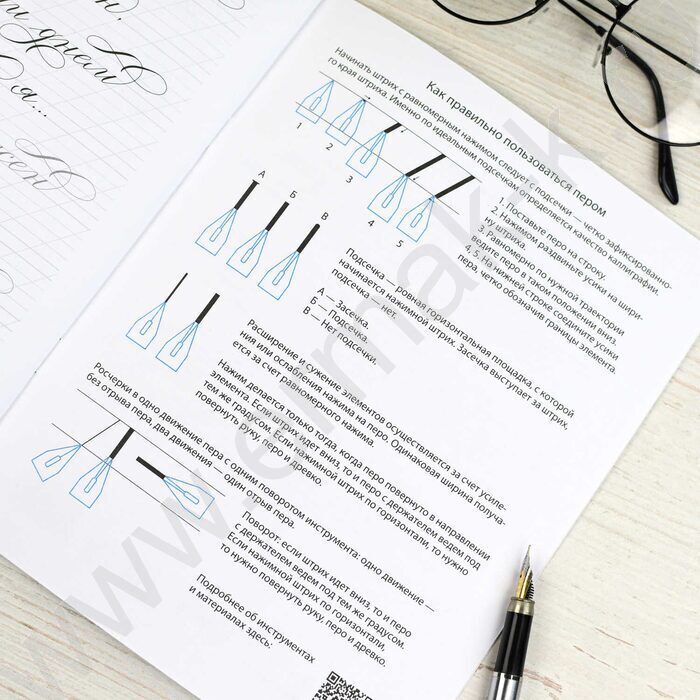 ри днѣй
я...
Как правильно пользоваться пером
Начинать штрих с равномерным нажимом следует с подсечки — четко зафиксированно-
го края штриха. Именно по идеальным подсечкам определяется качество каллиграфии.
1 2 3 4 5
1. Поставьте перо на строку.
2. Нажимом раздвиньте усики на шири-
ну штриха.
3. Равномерно по нужной траектории
ведите перо в таком положении вниз.
4, 5. На нижней строке соедините усики
пера, четко обозначив границы элемента.
А Б В
Подсечка — ровная горизонтальная площадка, с которой
начинается нажимной штрих. Засечка выступает за штрих,
подсечка — нет.
А — Засечка.
Б — Подсечка.
В — Нет подсечки.
Расширение и сужение элементов осуществляется за счет усиле-
ния или ослабления нажима на перо. Одинаковая ширина получа-
ется за счет равномерного нажима.
Нажим делается только тогда, когда перо повернуто в направлении
элемента. Если штрих идет вниз, то и перо с держателем ведем под
тем же градусом. Если нажимной штрих по горизонтали, то нужно
повернуть руку, перо и древко.
Росчерки в одно движение пера с одним поворотом инструмента: одно движение —
без отрыва пера, два движения — один отрыв пера.
Поворот: если штрих идет вниз, то и перо
с держателем ведем под тем же градусом.
Если нажимной штрих по горизонтали,
то нужно повернуть руку, перо и древко.
Подробнее об инструментах
и материалах здесь: